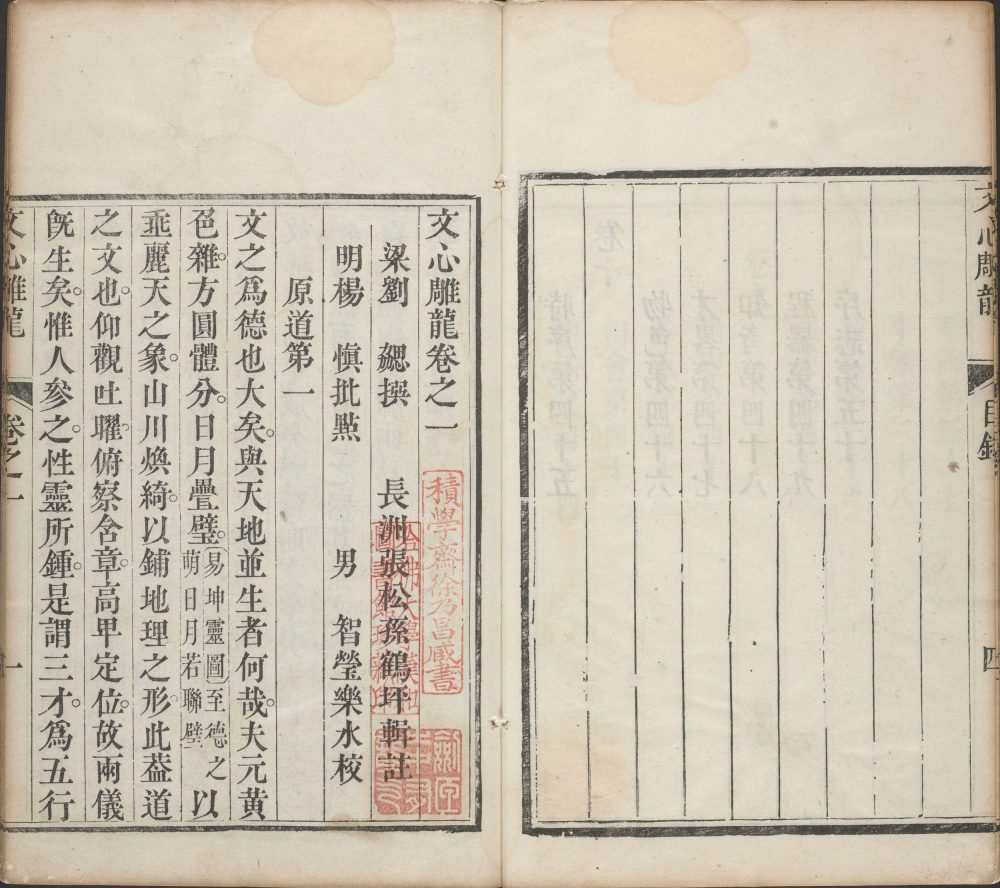 文心雕龍
目錄
四
文心雕龍卷之一
梁劉　勰撰　長洲張松孫鶴坪輯註
明楊　慎批㸃　男　智瑩樂水校
原道第一
文之爲德也大矣與天地並生者何哉夫元黃
色雜方圓體分日月疊璧易坤靈圖至德之萌日月若聯璧以
垂麗天之象山川煥綺以鋪地理之形此葢道
之文也仰觀吐曜俯察含章高卑定位故兩儀
旣生矣惟人參之性靈所鍾是謂三才爲五行
文心雕龍
卷之一
一
積學齋徐乃昌藏書